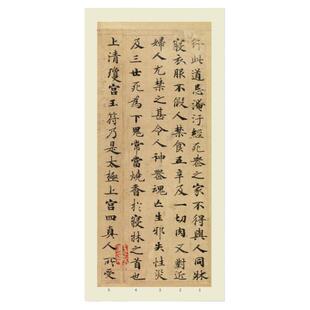 行此道忌淹汙經死丧之家不得與人同牀
寝衣服不假人禁食五辛及一切肉又對近
婦人尤禁之甚令人神喪魂亡生邪失性灾
及三世死為下鬼常當燒香於寝牀之首也
上清瓊宫玉符乃是太極上宫四真人所受